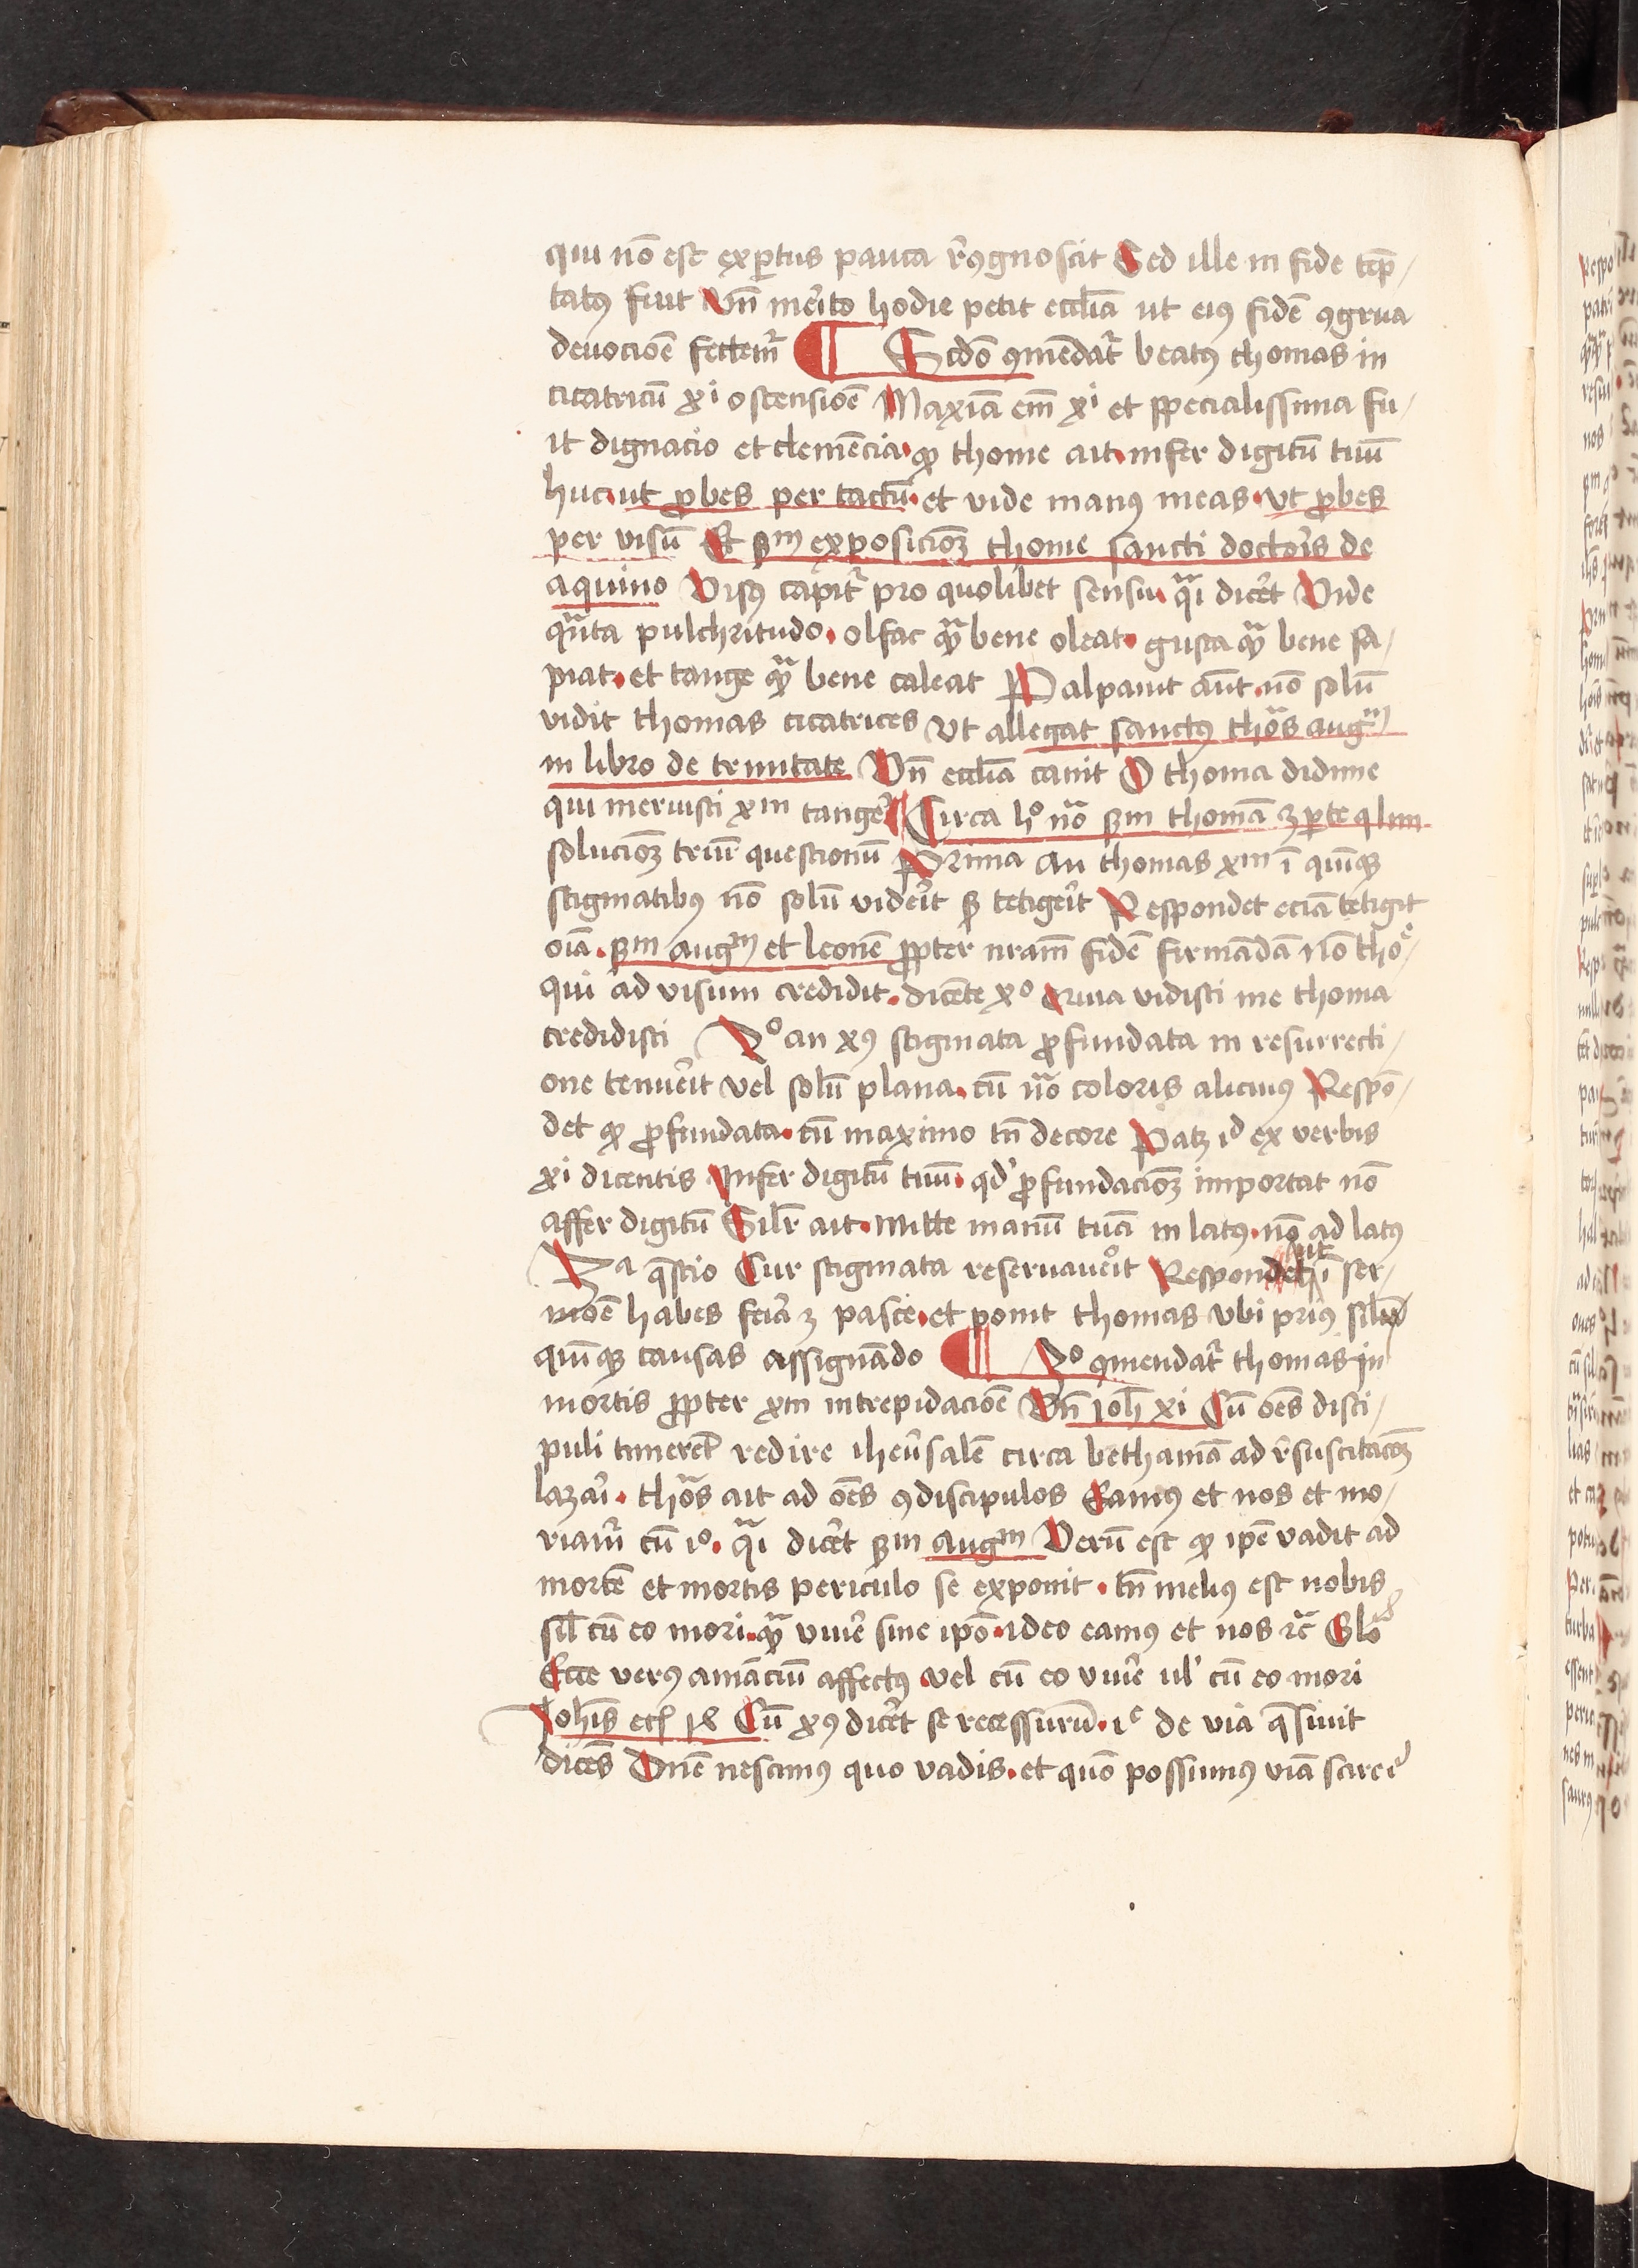 qui nō est exꝑtus pauca r̄ꝯgnoscit Sed ille in fide tēp
tatꝰ fuit Vn̄ mēito hodie petit eccl̄ia ut eiꝰ fidē ꝯgrua
deuocioē sectem̄ Scd̄o ꝯmēdat̄ beatꝰ thomas in
cicatricū xi ostensioē Maxīa em̄ xi et specialissima fu
it dignacio et clemēcia ꝙ thome ait infer digitū tuū
huc ut ꝓbes per tactū et vide manꝰ meas vt ꝓbes
per visū Et ẜm exposicioꝫ thome sancti doctōis de
aquino Visꝰ capit̄ pro quolibet sensu qᷓi dicēt Vide
qᷓnta pulchritudo olfac ꝙᷓ bene oleat gusta ꝙᷓ bene sa
piat et tange ꝙᷓ bene caleat Palpauit aūt nō solū
vidit thomas cicatrices vt allegat sanctꝰ thōs augᵐ
in libro de trinitate Vn̄ eccl̄ia canit O thoma didime
qui meruisti xm tangē Circa hᵒ nō ẜm thomā
solucioꝫ triū questionū Prima an thomas xm ī quīqꝫ
stigmatibꝰ nō solū vidēit ẜ tetigēit Respondet eciā tetigit
oīa ẜm augᵐ et leonē ꝓpter nram̄ fidē firmādā nō thoᵉ
qui ad visum credidit dicēte xᵒ Quia vidisti me thoma
credidisti 2ᵒ an xꝰ stigmata ꝓfundata in resurrecti
one tenuēit vel solū plana cū nō coloris alicuiꝰ Respō
det ꝙ ꝓfundata cū maximo tn̄ decore Patꝫ id ex verbis
xi dicentis Infer digitū tuū qd̓ ꝓfundacioꝫ importat nō
affer digitū Sil̄r ait mitte manū tuā in latꝰ nō ad latꝰ
3ᵃ q̄stio Cur stigmata reseruauēit Respondet ī ser
moē habes fēia 3 pasce et ponit thomas vbi priꝰ
quīqꝫ causas assignādo 2ᵒ ꝯmendat̄ thomas in
mortis ꝓpter xm intrepidacioē Vn̄ Joh̄ xi Cū oēs disci
puli timerēt redire iherusalē circa bethaniā ad r̄suscitacōꝫ
lazaī thōs ait ad oēs ꝯdiscipulos Eamꝰ et nos et mo
riam̄ cū iᵒ qᷓi dicēt ẜm augᵐ Verū est ꝙ ip̄e vadit ad
mortē et mortis periculo se exponit tn̄ meliꝰ est nobis
sil̄ cū eo mori ꝙᷓ viuē sine ip̄o ideo eamꝰ et nos ⁊c̄ Glo
Ecce verꝰ amāciū affectꝰ vel cū eo viuē ul̓ cū eo mori
Joh̄is Cū xꝰ dicēt se recessurū iᵉ de via q̄siuit
dicēs Dn̄e nescimꝰ quo vadis et quō possumꝰ viā scire